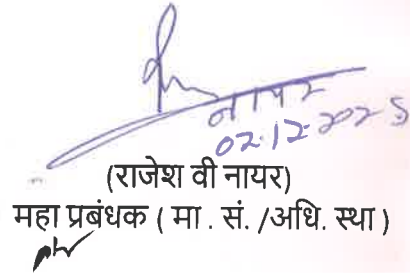 नायर
02.12.2025
(राजेश वी नायर)
महा प्रबंधक ( मा . सं. /अधि. स्था )